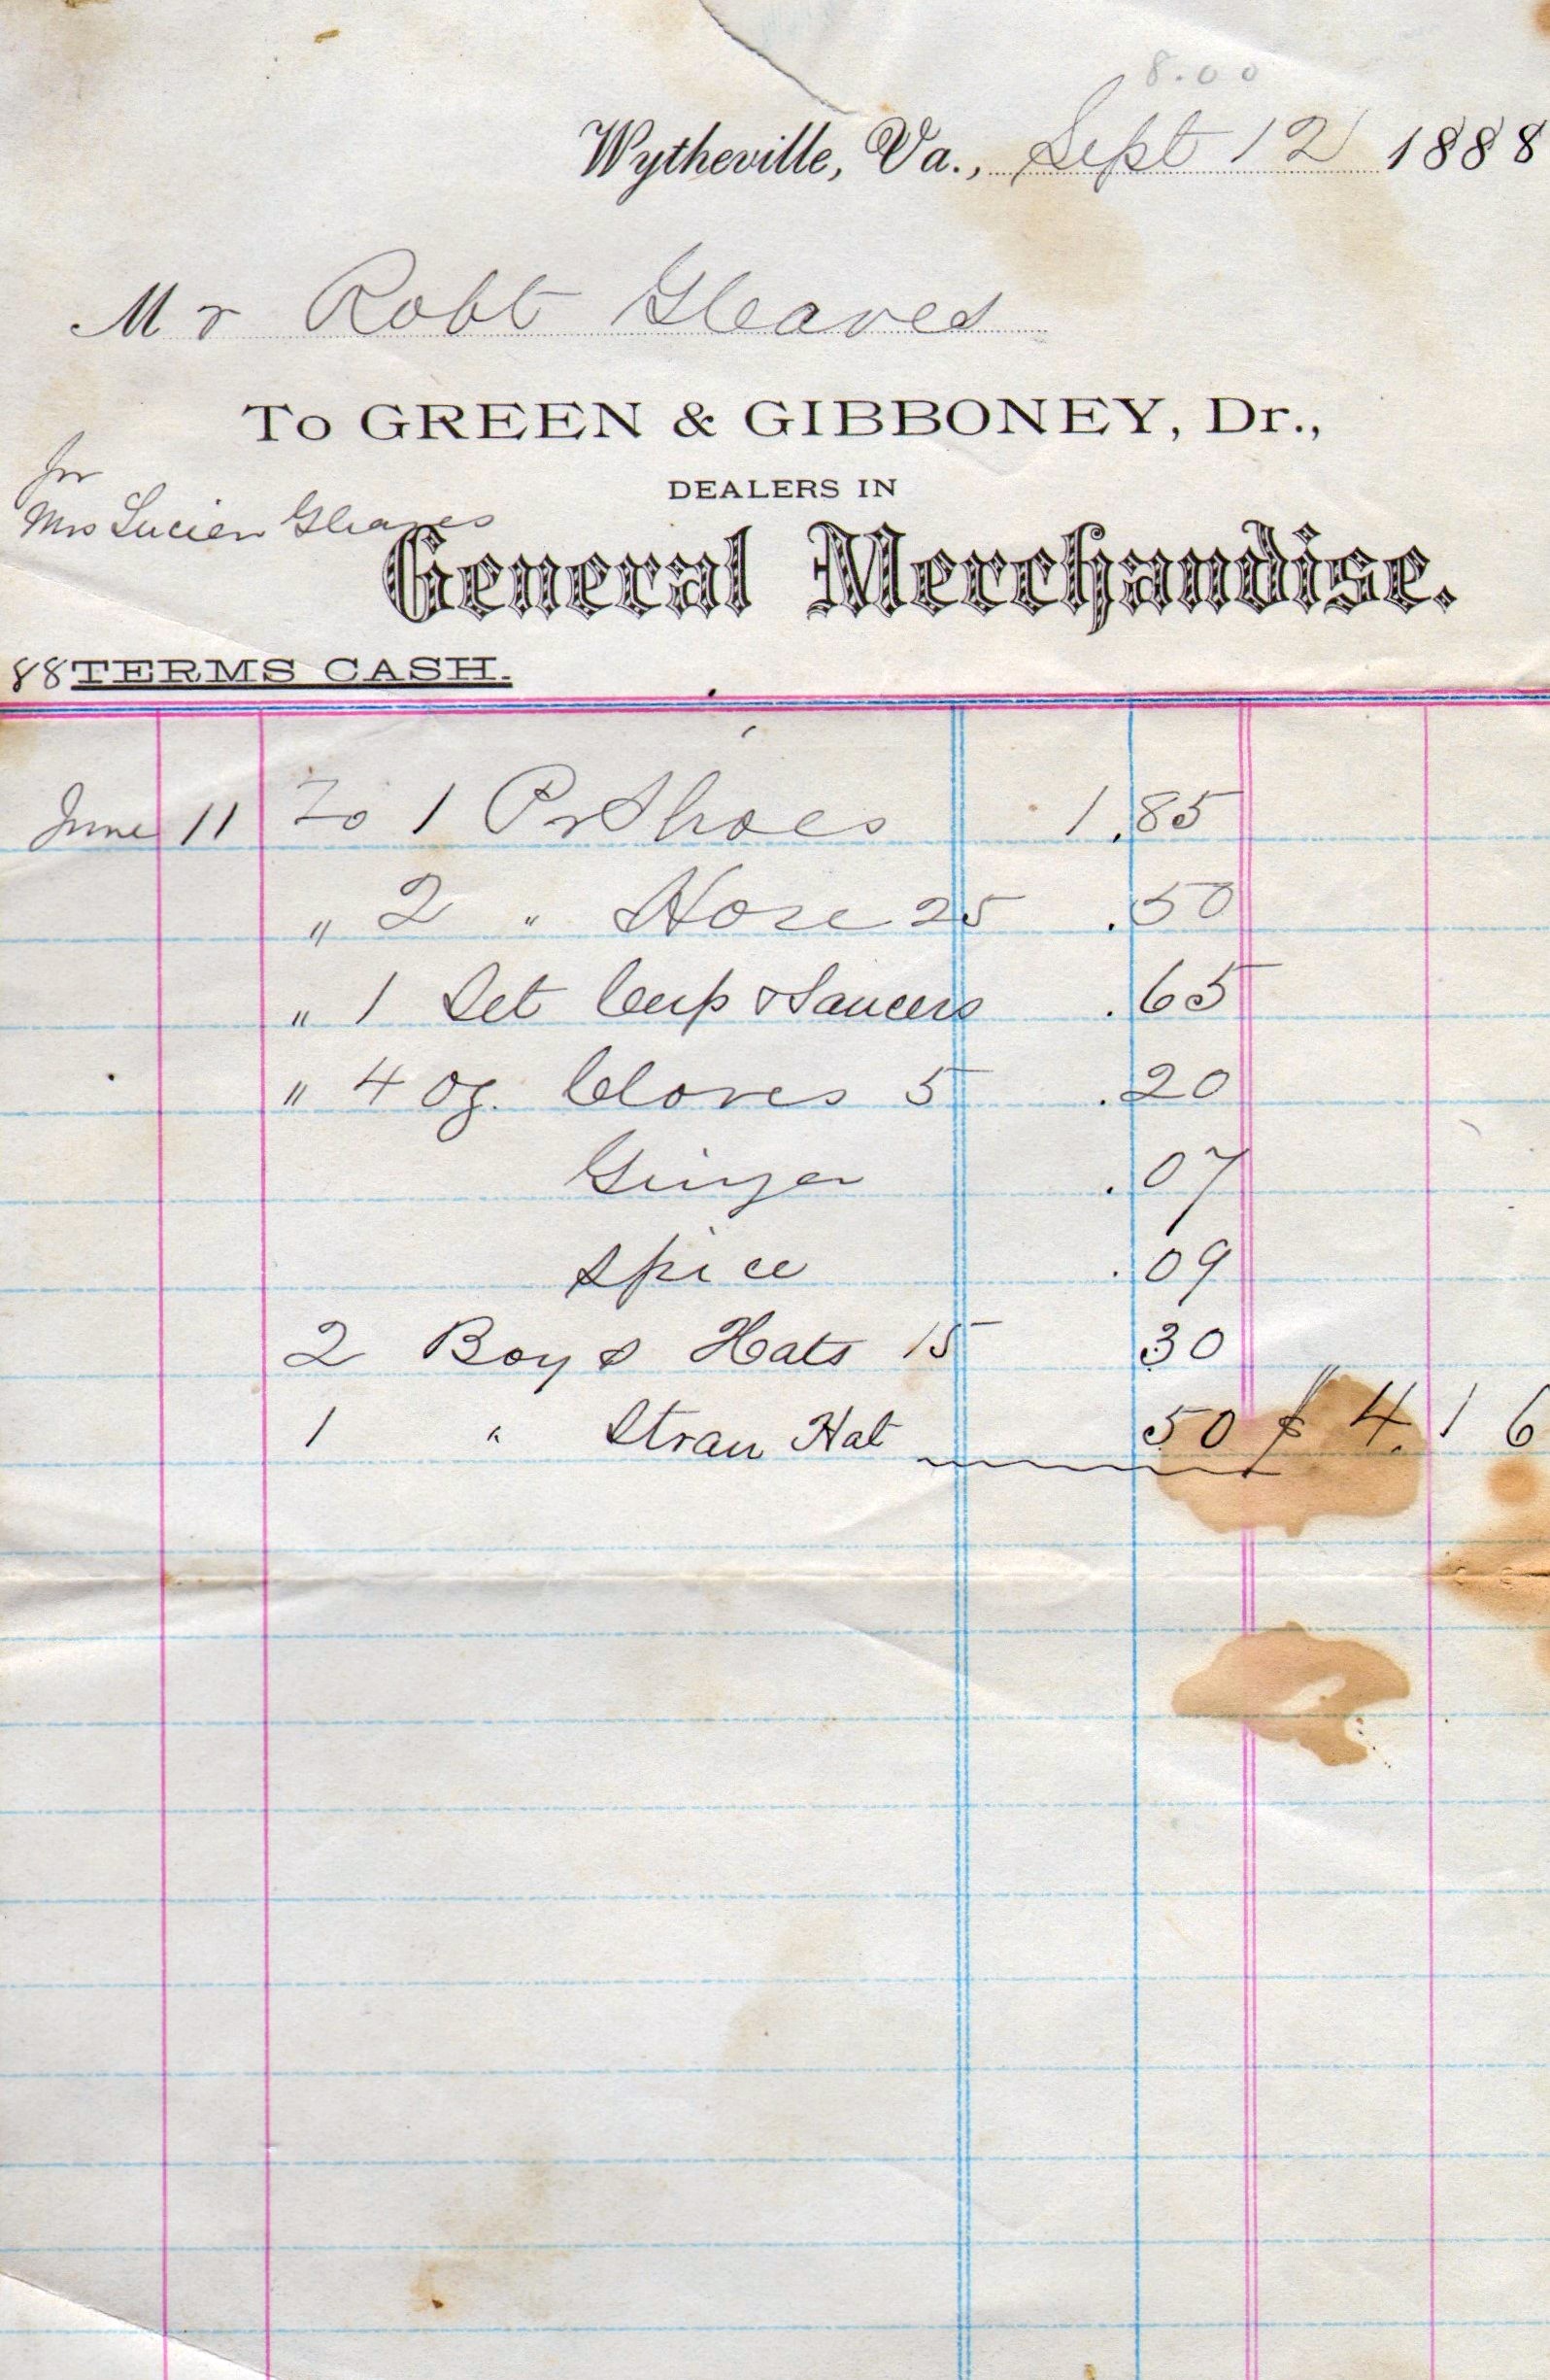 8.00
Wytheville, Va., Sept 12 1888
Mr Robt Gleaves
To GREEN & GIBBONEY, Dr.,
for
Mrs Lucien Gleaves
DEALERS IN
General Merchandise.
88 TERMS CASH.
June 11 To 1 Pr Shoes 1.85
" 2 " Hose 25 .50
" 1 Set Cup & Saucers .65
" 4 oz. Cloves 5 .20
Ginger .07
Spice .09
2 Boys Hats 15 30
1 " Straw Hat 50 $ 4.16